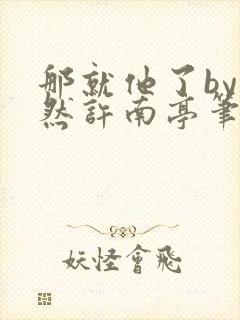 那就他了by
然許南亭筆
妖怪會飛